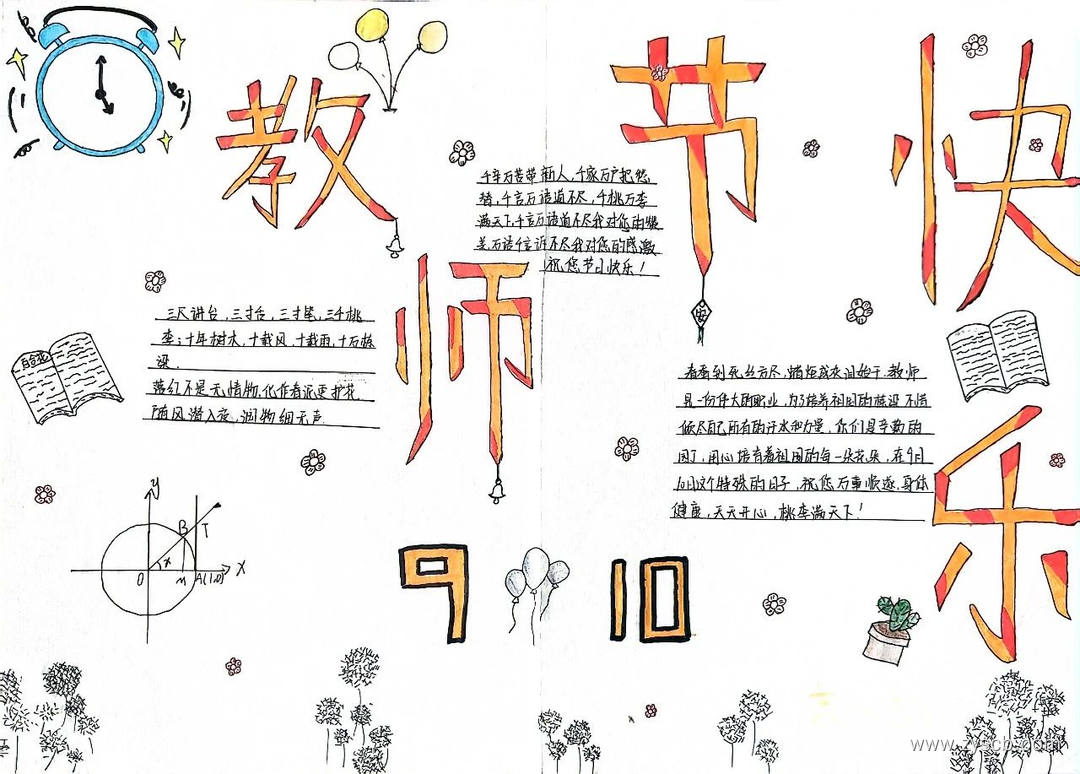 教师节快乐
千辛万苦 新人,千家万户把您
千言万语道不尽,千桃万李
满天下,千言万语道不尽我对您的赞
美,万语千言诉不尽我对您的感激
祝您节日快乐!
三尺讲台,三寸舌,三寸笔,三千桃
李;十年树木,十载风,十载雨,十万栋
梁.
落红不是无情物,化作春泥更护花
随风潜入夜,润物细无声.
春蚕到死丝方尽,蜡炬成灰泪始干.教师
是一份伟大的职业,为了培养祖国的 不惜
倾尽自己所有的汗水和力量,你们是辛勤的
园丁,用心培育着祖国的每一朵花朵,在9月
10日这个特殊的日子,祝您万事顺遂,身体
健康,天天开心,桃李满天下!
y
B
T
x
O
M
A(1,0)
X
9 10